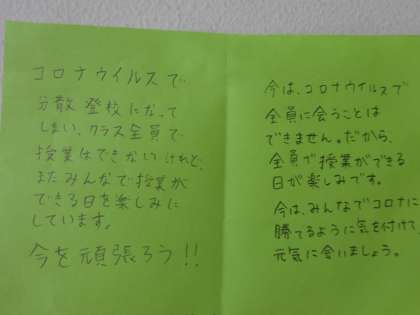 コロナウイルスで
分散登校になって
しまい、クラス全員で
授業はできないけれど、
またみんなで授業が
できる日を楽しみに
しています。
今を頑張ろう!!
今は、コロナウイルスで
全員に会うことは
できません。だから、
全員で授業ができる
日が楽しみです。
今は、みんなでコロナに
勝てるように気を付けて、
元気に会いましょう。